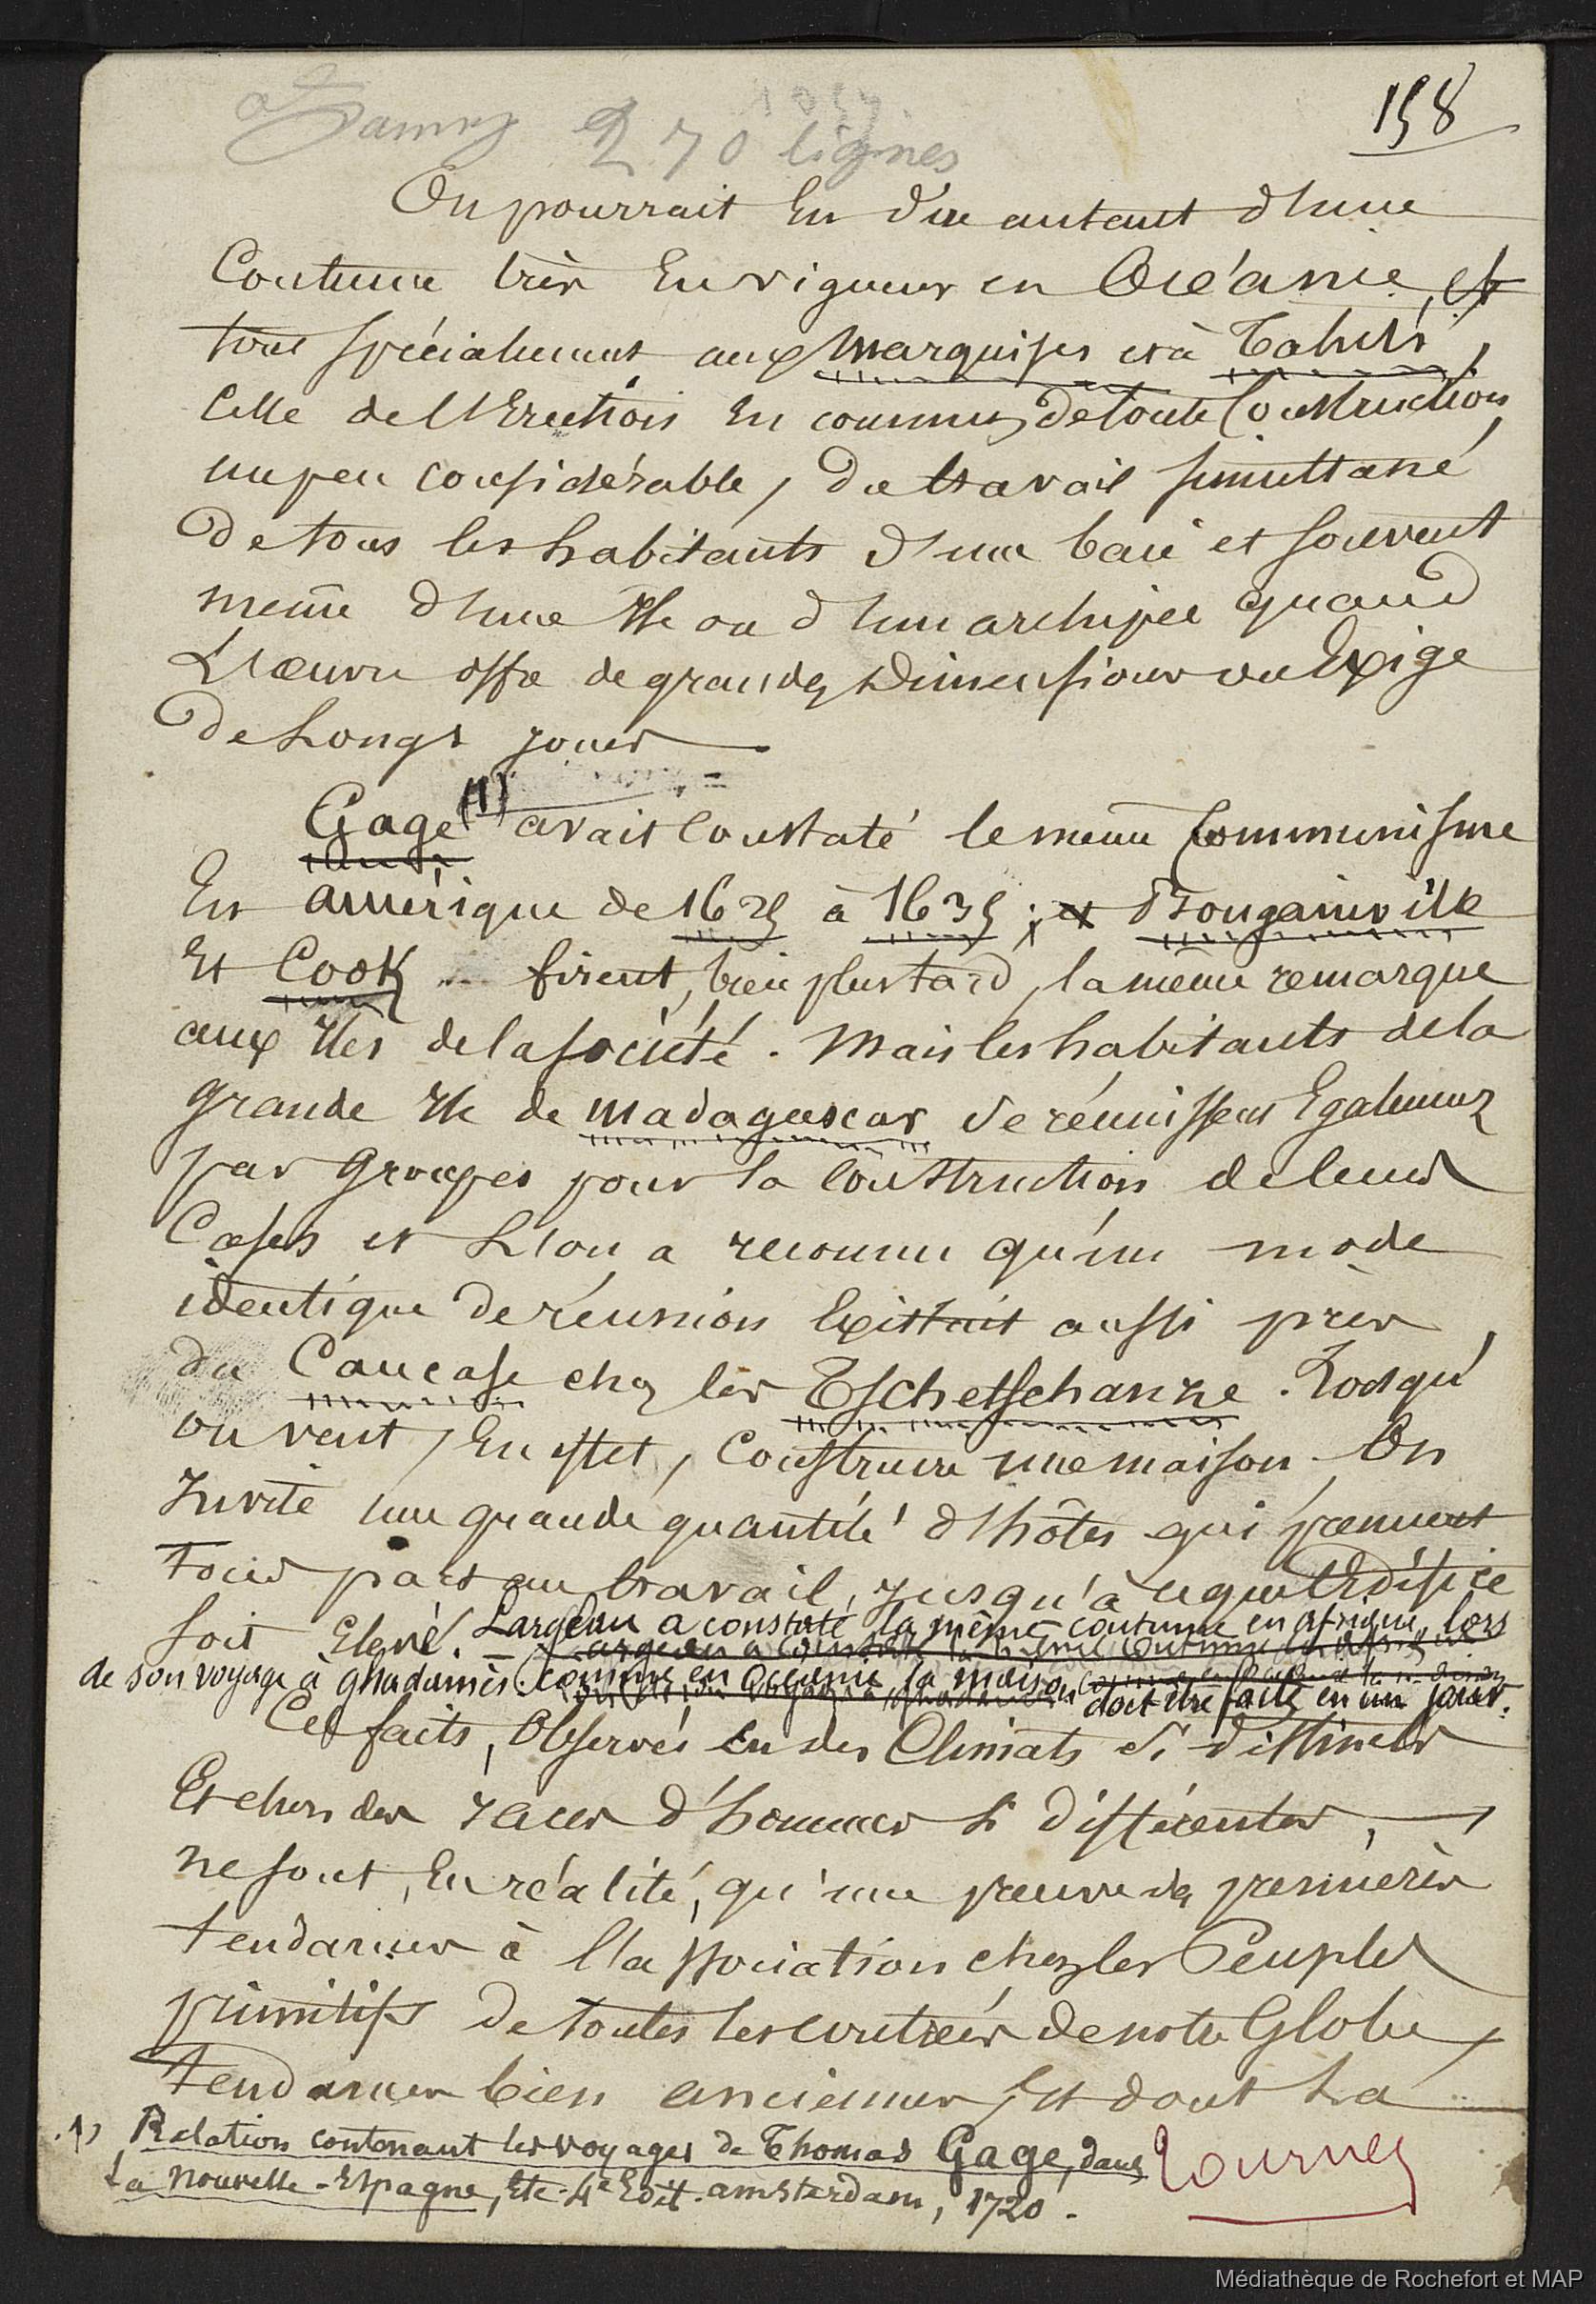 158
270 lignes
On pourrait En dire autant d'une
Coutume très En vigueur en Océanie, et
tout spécialement aux Marquises et à Tahiti,
Celle de l'Erection En commun de toute Construction
un peu considérable, du travail simultané
De tous les habitants d'une baie et souvent
même d'une Ile ou d'un archipel quand
L'œuvre offre de grandes Dimensions ou Exige
De Longs jours
Gage (1) avait Constaté le même Communisme
En amérique de 1625 à 1635 ; et Bougainville
Et Cook firent, bien plus tard, la même remarque
aux Iles de la société. Mais les habitants de la
grande Ile de Madagascar se réunissent Egalement
par Groupes pour la Construction de leurs
Cases et L'on a reconnu qu'un mode
identique De réunion Existait aussi près
du Caucase chez les Tschetschanze. Lorsqu'
on veut, En effet, Construire une maison On
Invite une grande quantité d'hôtes qui prennent
Tous part au travail, jusqu'à ce que l'Edifice
soit Elevé. Largeau a constaté la même coutume en afrique, lors
de son voyage à Ghadamès. comme en Océanie la maison doit être faite en un jour.
Ces faits, Observés En des Climats si distincts
Et chez des races d'hommes si différentes,
ne sont, En réalité, qu'une preuve des premières
tendances à l'association chez les Peuples
primitifs De toutes les contrées de notre Globe,
Tendances bien anciennes, Et dont La
(1) Relation contenant les voyages de Thomas Gage, dans
La Nouvelle-Espagne, Etc. 4e Edit. amsterdam, 1720.
Tournez
Médiathèque de Rochefort et MAP